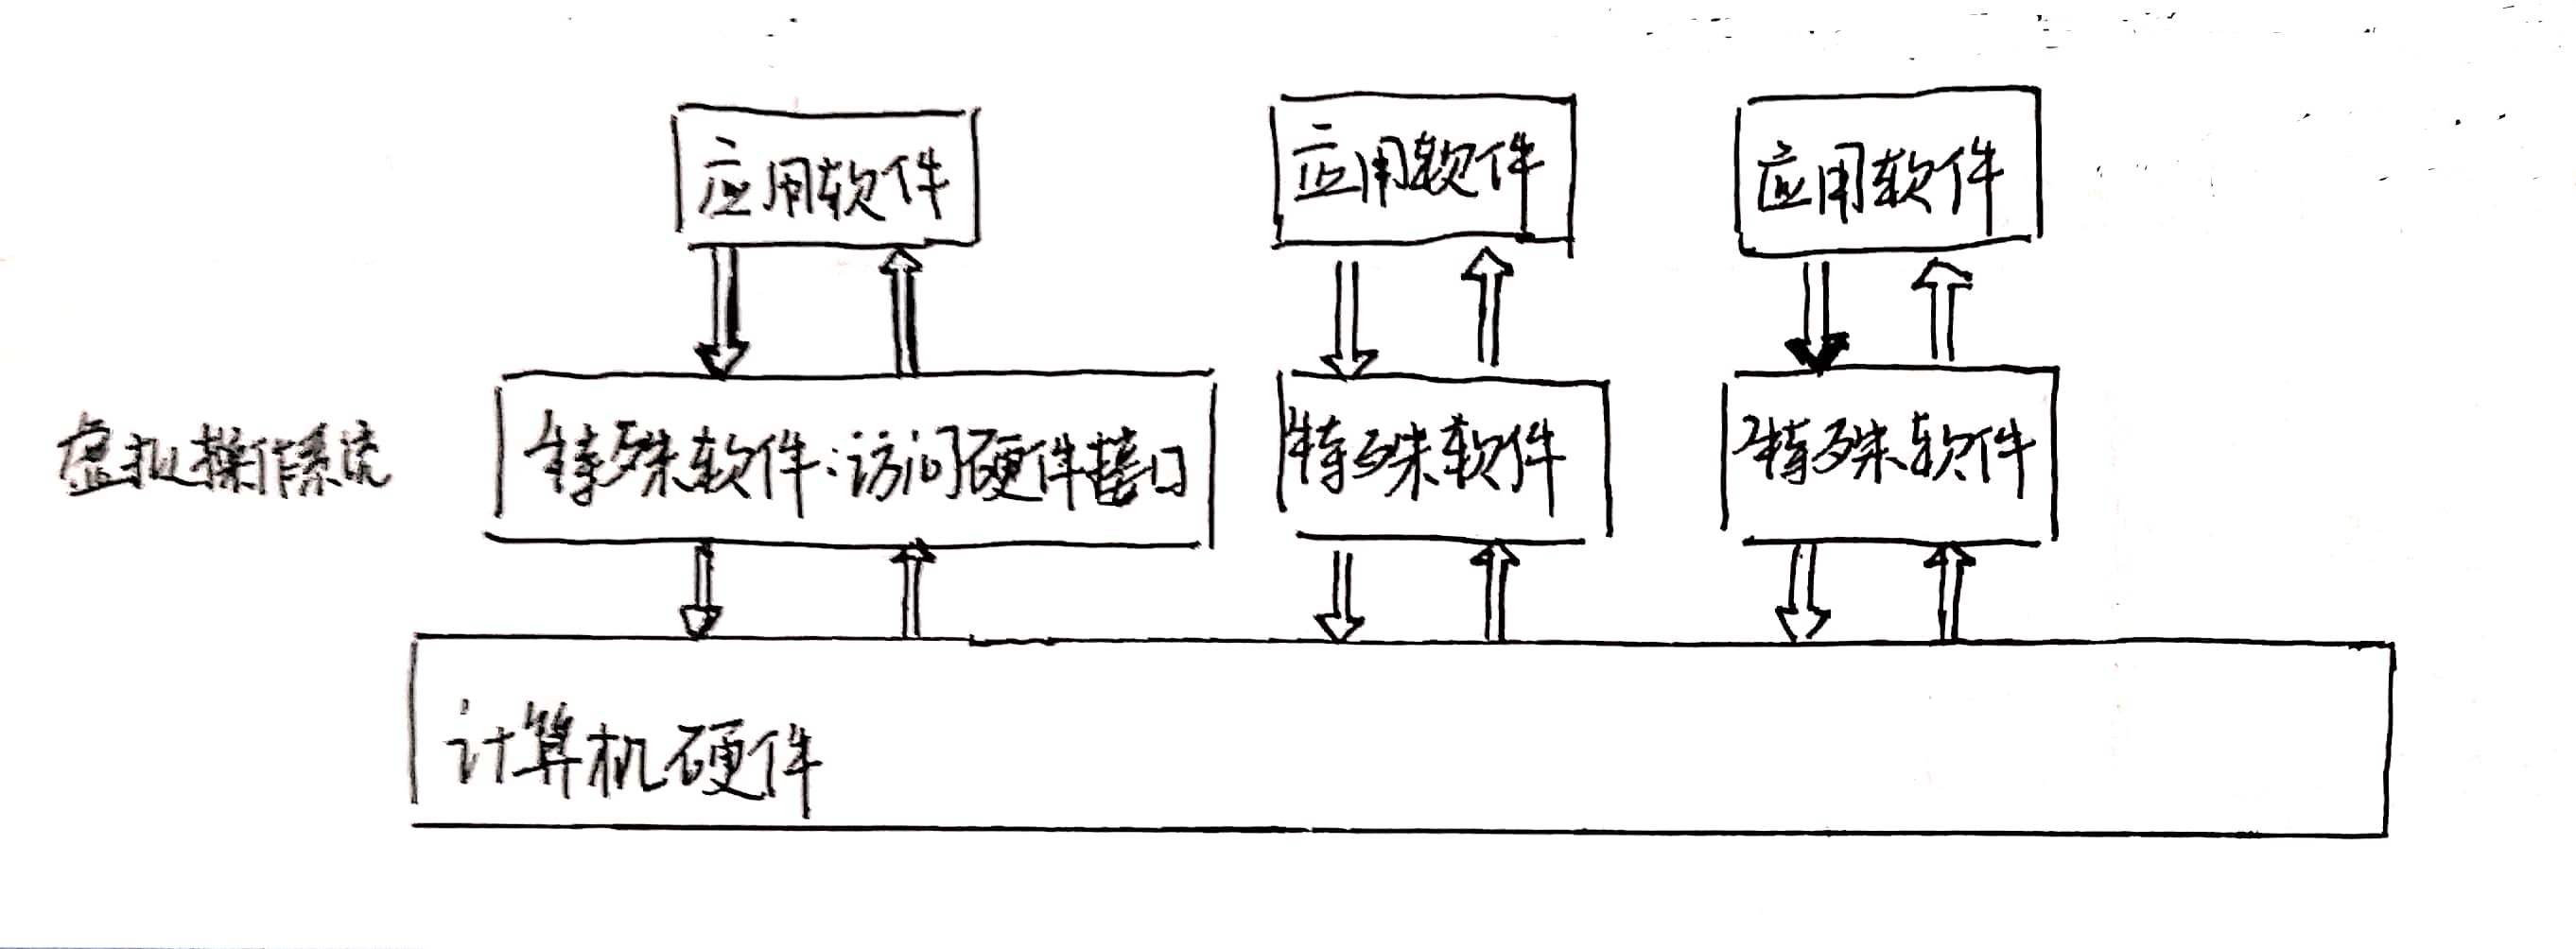 应用软件
应用软件
应用软件
虚拟操作系统
特殊软件:访问硬件接口
特殊软件
特殊软件
计算机硬件